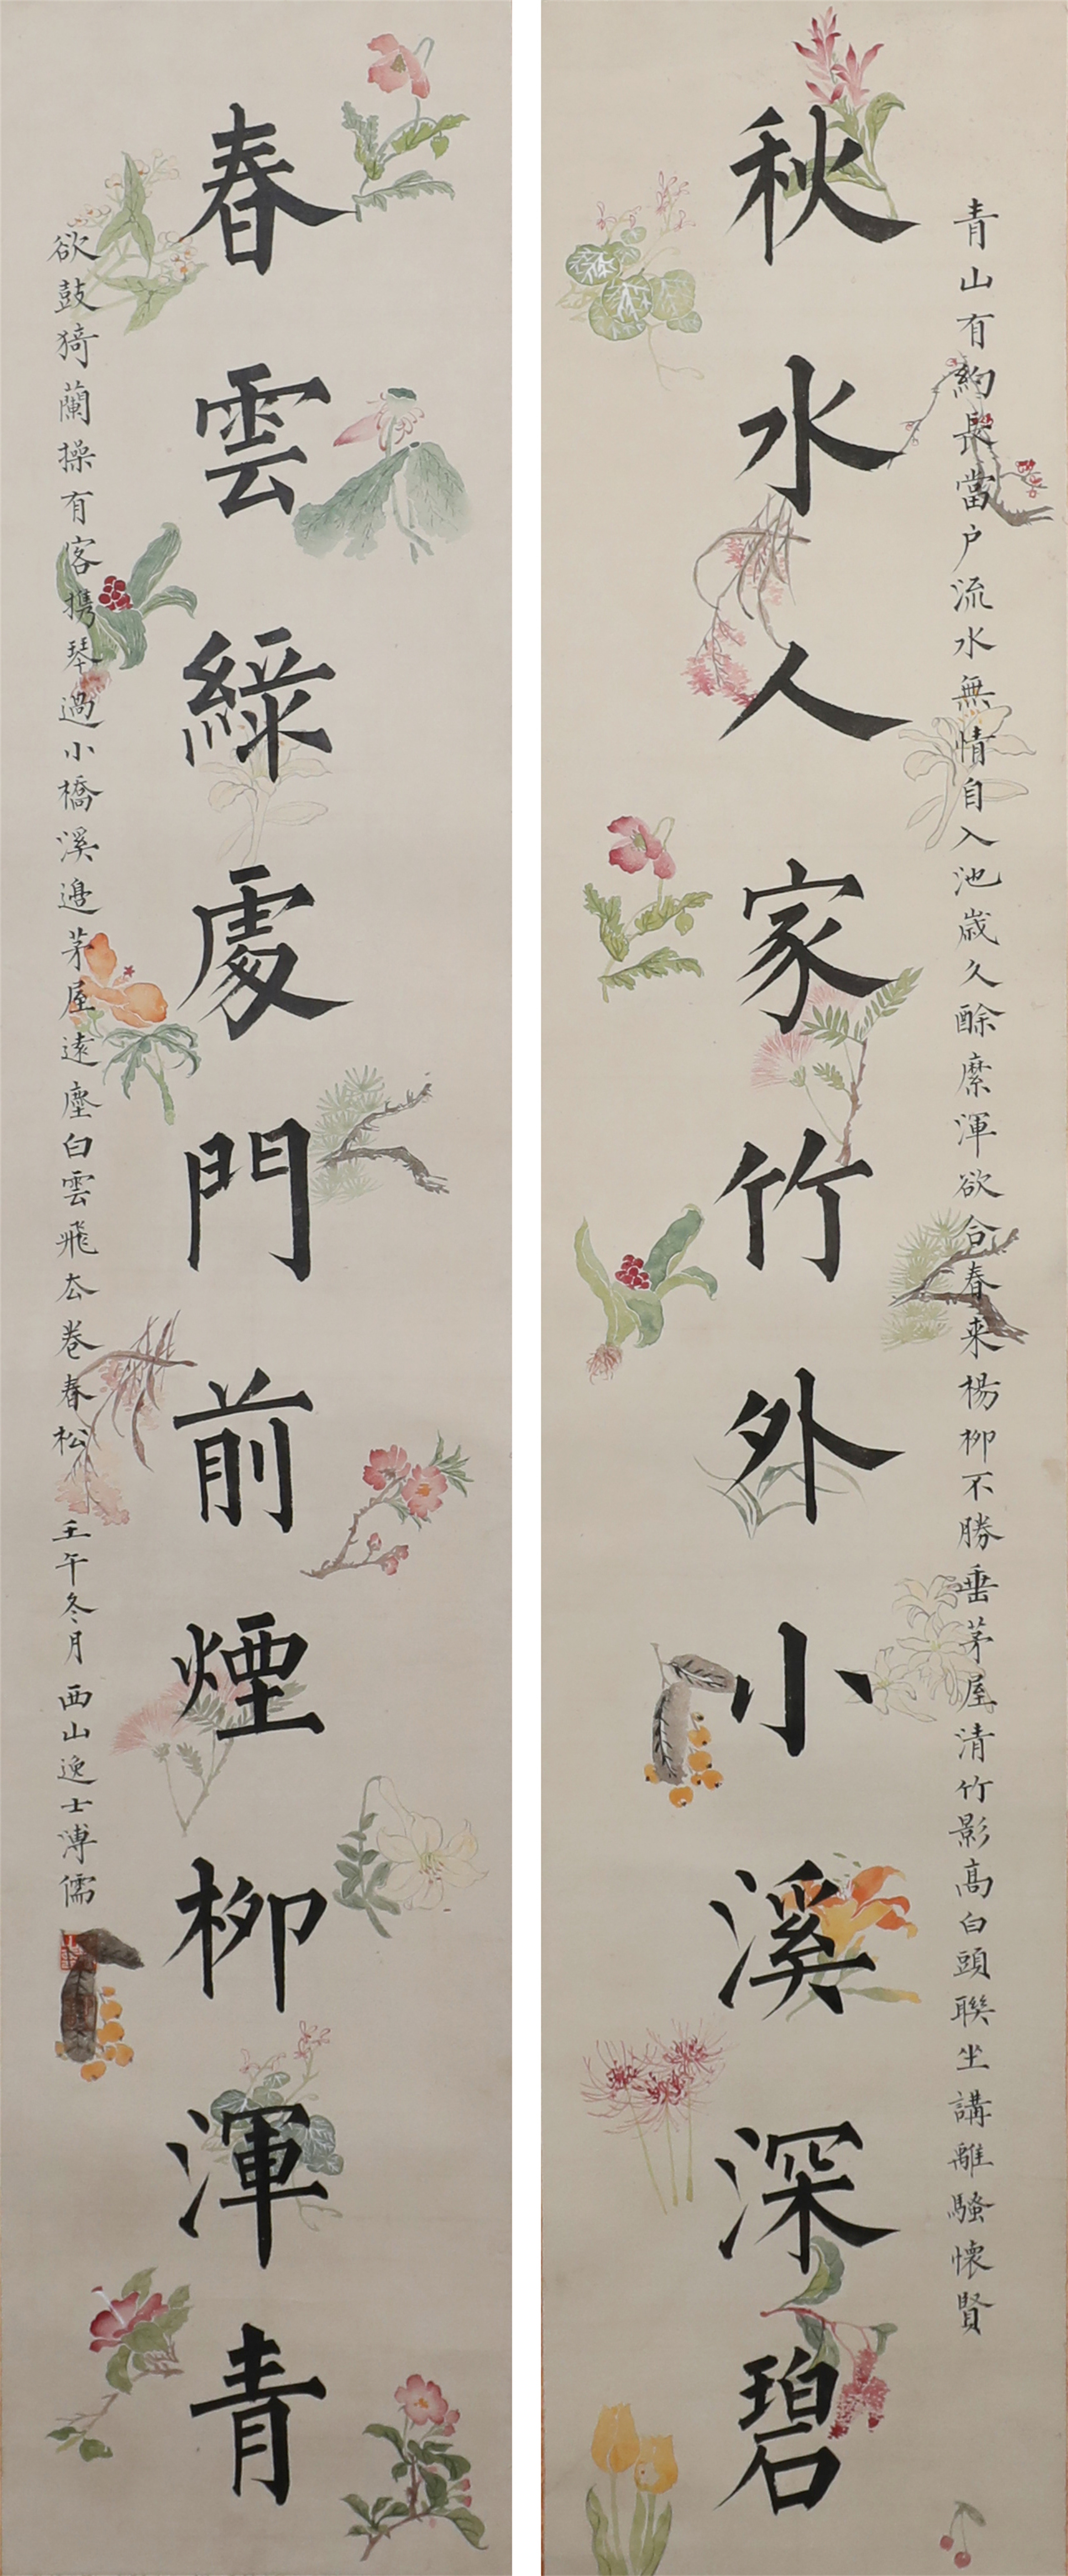 青山有約長當户流水無情自入池歲久酴縻渾欲合春来楊柳不勝垂茅屋清竹影髙白頭聯坐講離騷懷賢
秋水人家竹外小溪深碧
春雲綠處門前煙柳渾青
欲鼓猗蘭操有客携琴過小橋溪邊茅屋遠塵白雲飛去卷春松 壬午冬月西山逸士溥儒